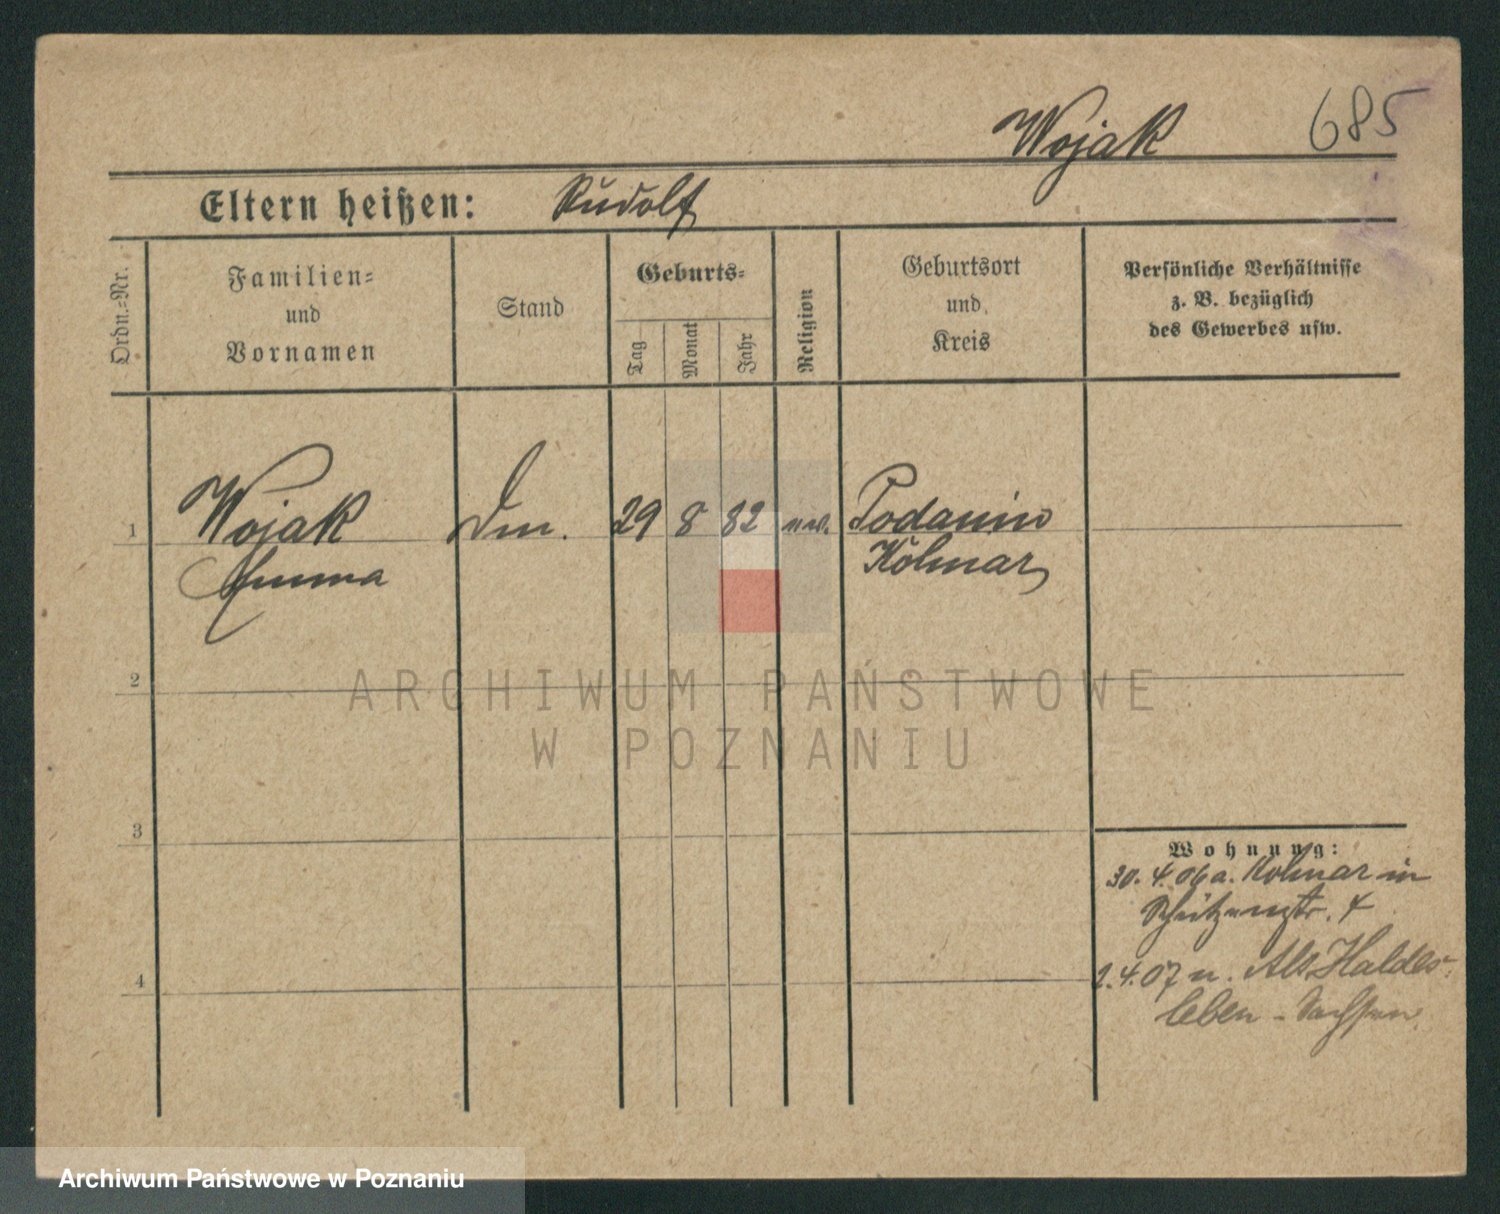 Wojak 685
Eltern heißen: Rudolf
Ordn.-Nr.
Familien-
und
Vornamen
Stand
Geburts-
Tag
Monat
Jahr
Religion
Geburtsort
und
Kreis
Persönliche Verhältnisse
z. B. bezüglich
des Gewerbes usw.
1 Wojak 29 8 82 Podanin
Emma Kolmar
2
3
4
Wohnung:
30. 4. 06 a. Kolmar in
Schützenstr. 4
2. 4. 07 n. Alt Haldes-
leben - Sachsen
ARCHIWUM PAŃSTWOWE
W POZNANIU
Archiwum Państwowe w Poznaniu